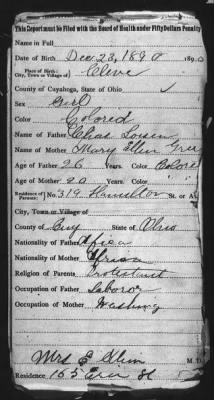 This Report must be Filed with the Board of Health under Fifty Dollars Penalty
Name in Full
Date of Birth Dec 23, 1890 189
Place of Birth:
City, Town or Village of Cleve
County of Cuyahoga, State of Ohio,
Sex Girl
Color Colored
Name of Father Chas
Name of Mother Mary Ellen
Age of Father 26 Years. Color Colore
Age of Mother 20 Years. Color
Residence of Parents: No. 319 Hamilton St. or Av
City, Town or Village of
County of Cuy State of Ohio
Nationality of Father Africa
Nationality of Mother Africa
Religion of Parents Protestant
Occupation of Father Laboror
Occupation of Mother Washing
Mrs E M. D.
Residence 165 St